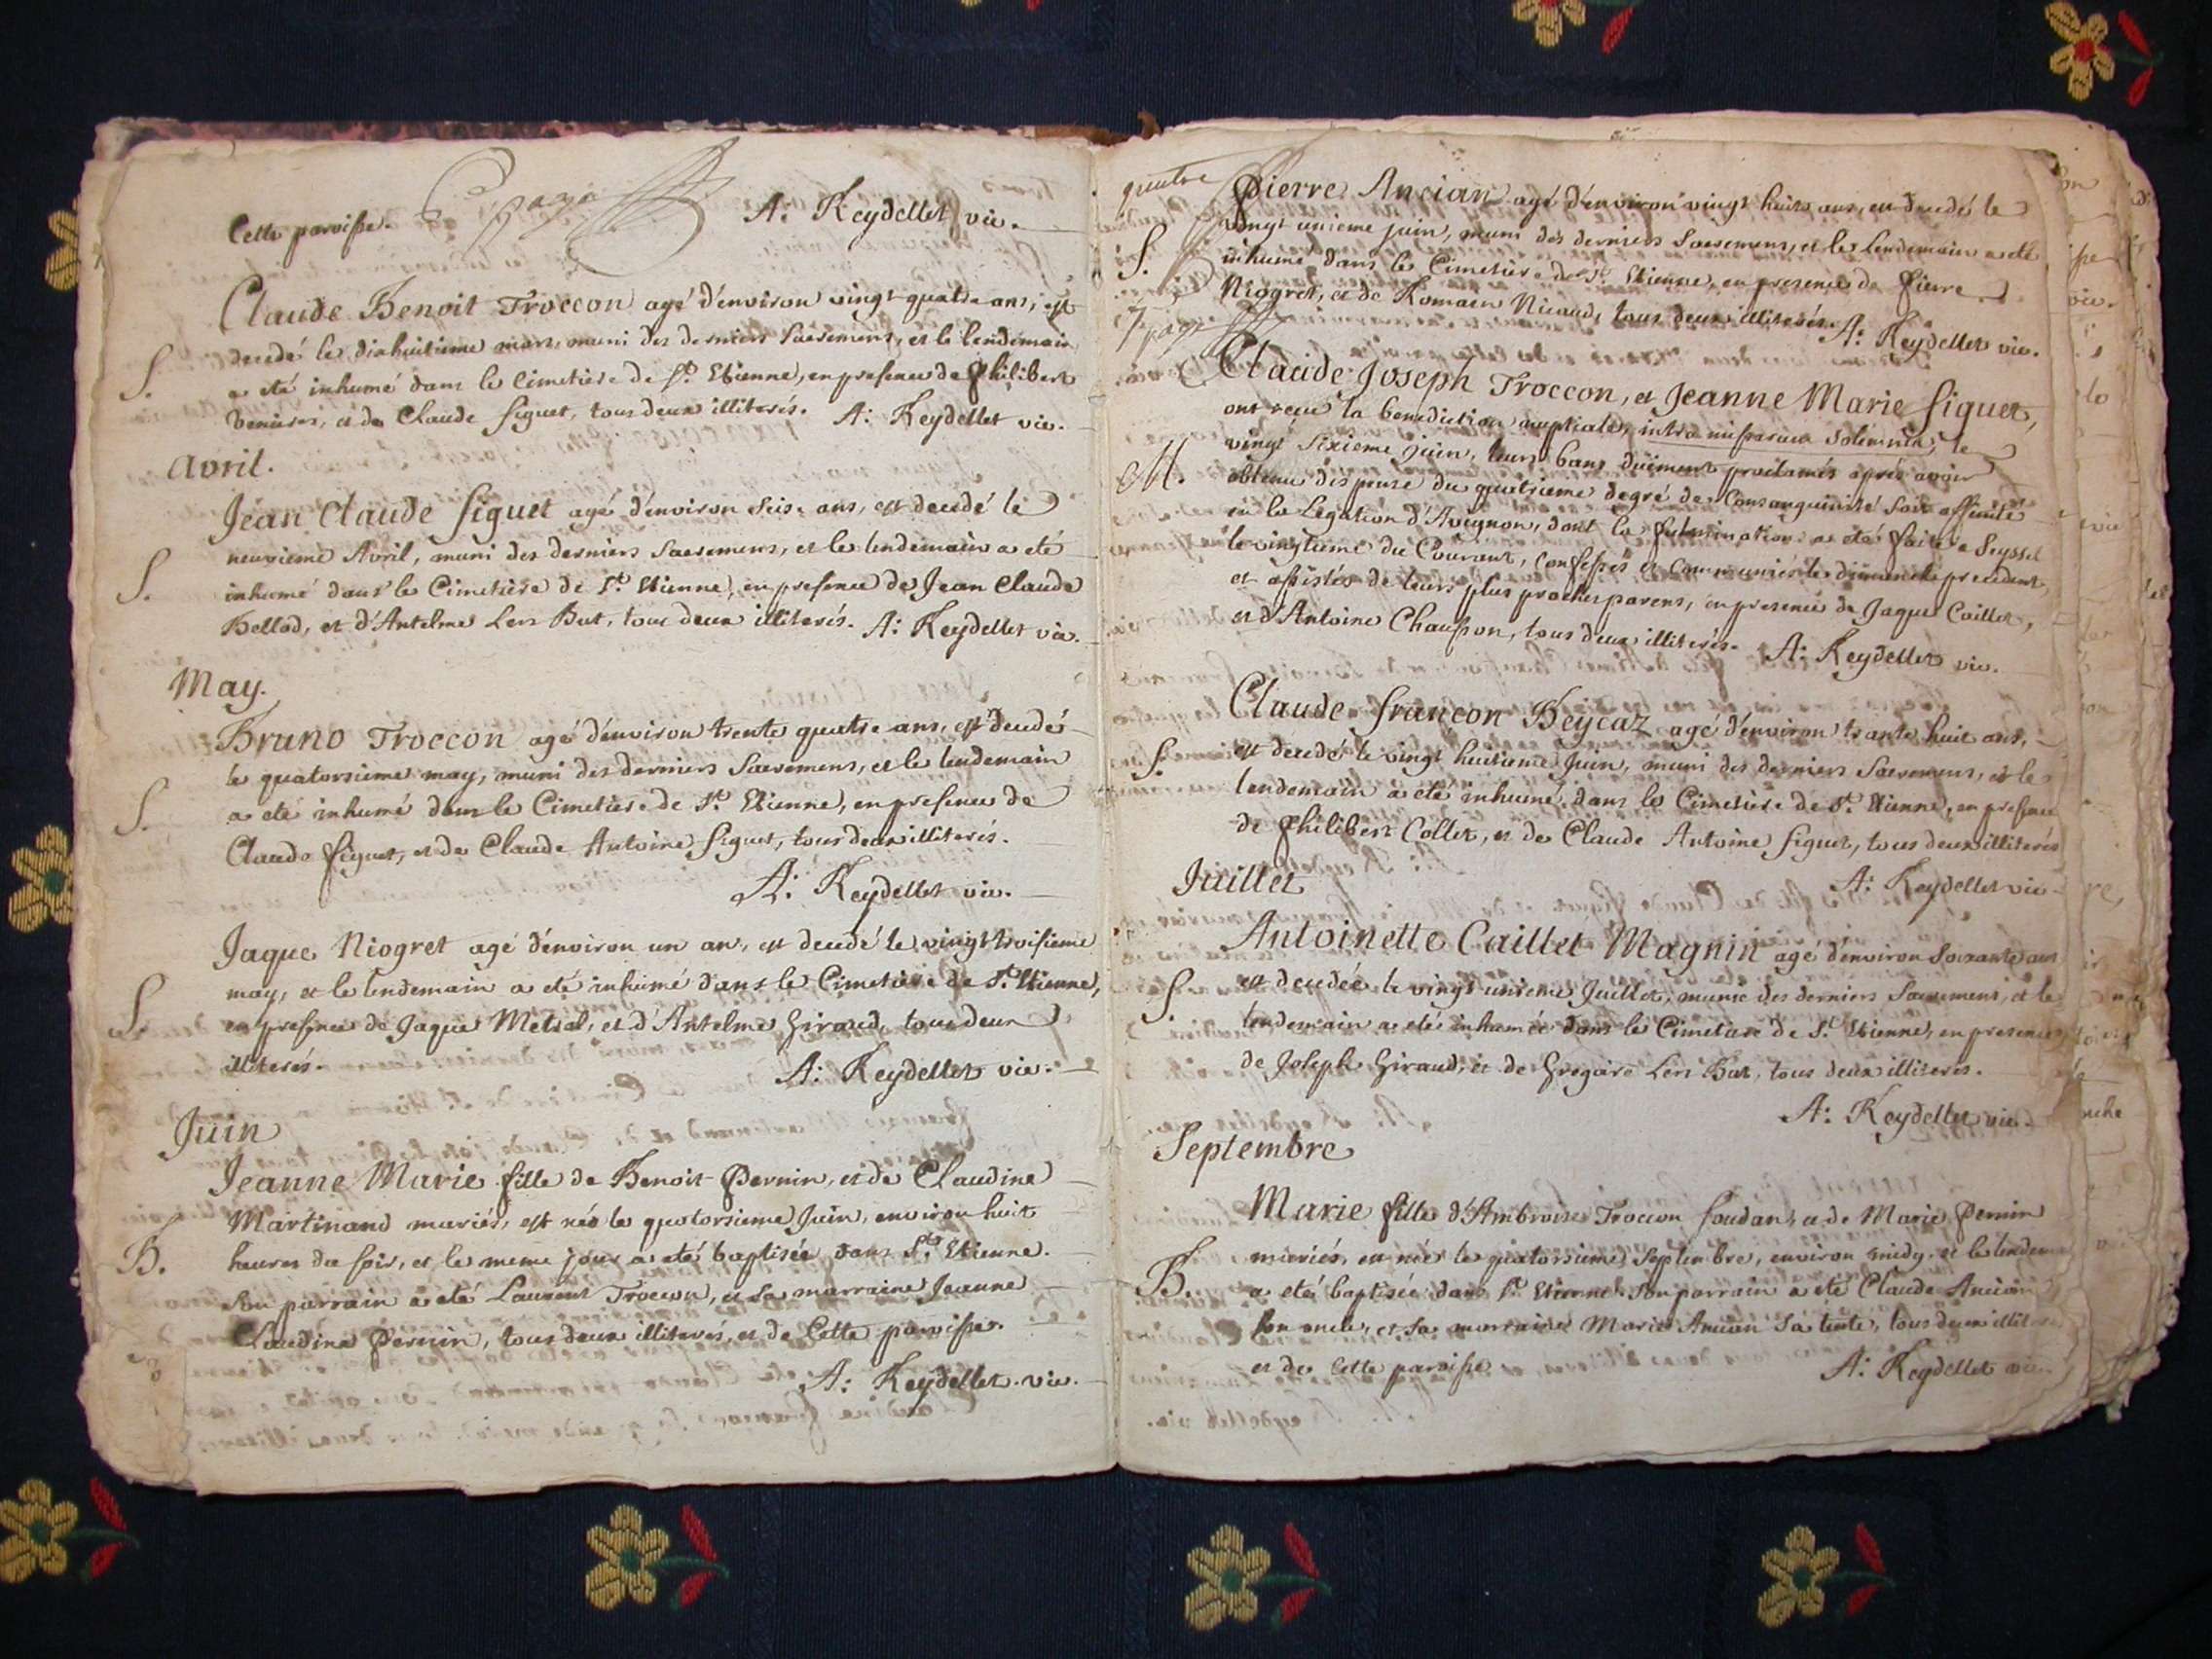 Cette paroisse.
6e page
A: Reydellet vic.
Claude Benoit Troccon agé d'environ vingt quatre ans, est
S.
decedé le dixhuitieme mars, muni des derniers Sacremens, et le lendemain
a eté inhumé dans le Cimetiere de St. Etienne, en presence de Philibert
et de Claude Siguet, tous deux illiterés. A: Reydellet vic.
Avril.
Jean Claude Siguet agé d'environ seise ans, est decedé le
S.
neuvieme Avril, muni des derniers Sacremens, et le lendemain a eté
inhumé dans le Cimetiere de St. Etienne, en presence de Jean Claude
Bellod, et d'Antelme Lers But, tous deux illiterés. A: Reydellet vic.
May.
Bruno Troccon agé d'environ trente quatre ans, est decedé
S.
le quatorsieme may, muni des derniers Sacremens, et le lendemain
a eté inhumé dans le Cimetiere de St. Etienne, en presence de
Claude Siguet, et de Claude Antoine Siguet, tous deux illiterés.
A: Reydellet vic.
Jaque Niogret agé d'environ un an, est decedé le vingt troisieme
S.
may, et le lendemain a eté inhumé dans le Cimetiere de St. Etienne,
en presence de Jaque Metral, et d'Antelme Giraud, tous deux
illiterés.
A: Reydellet vic.
Juin
Jeanne Marie fille de Benoit Pernin, et de Claudine
B.
Martinand mariés, est née le quatorsieme Juin, environ huit
heures du soir, et le meme jour a eté baptisée dans St. Etienne.
Son parrain a eté Laurent Troccon, et sa marraine Jeanne
Claudine Pernin, tous deux illiterés, et de Cette paroisse.
A: Reydellet vic.
quatre
Pierre Ancian agé d'environ vingt huit ans, est decedé le
S.
vingt unieme juin, muni des derniers Sacremens, et le lendemain a eté
inhumé dans le Cimetiere de St. Etienne, en presence de Pierre
Niogret, et de Romain Nicaud, tous deux illiterés.
7 page
A: Reydellet vic.
Claude Joseph Troccon, et Jeanne Marie Siguet,
M.
ont reçu la benediction nuptiale, intra missarum Solemnia, le
vingt Sixieme juin, leurs bans duëment proclamés après avoir
obtenu dispense du quatrieme degré de Consanguinité soit affinité
en la Legation d'Avignon, dont la fulmination a eté faite a Seyssel
le vingtieme du Courant, confessés et communiés le dimanche precedent,
et assistés de leurs plus proches parens, en presence de Jaque Caillet,
et d'Antoine Chausson, tous deux illiterés. A: Reydellet vic.
Claude francon Beycaz agé d'environ trante huit ans,
S.
est decedé le vingt huitieme Juin, muni des derniers Sacremens, et le
lendemain a eté inhumé dans le Cimetiere de St. Etienne, en presence
de Philibert Collet, et de Claude Antoine Siguet, tous deux illiterés
A: Reydellet vic
Juillet
Antoinette Caillet Magnin agé d'environ Soixante ans
S.
est decedée le vingt unieme Juillet, munie des derniers Sacremens, et le
lendemain a eté inhumée dans le Cimetiere de St. Etienne, en presence
de Joseph Giraud, et de Gregoire Lers But, tous deux illiterés.
A: Reydellet vic.
Septembre
Marie fille d'Ambroise Troccon Soudan, et de Marie Pernin
B.
mariés, est née le quatorsieme Septembre, environ midy, et le lendem
a eté baptisée dans St. Etienne. Son parrain a eté Claude Ancian
son oncle, et sa marraine Marie Ancian sa tente, tous deux illiter
et de Cette paroisse
A: Reydellet vic